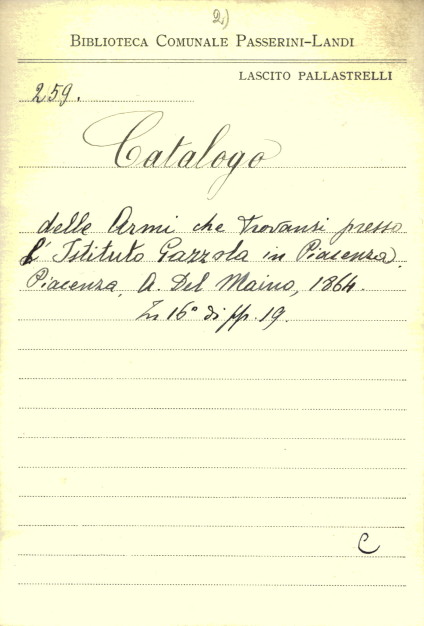 2)
BIBLIOTECA COMUNALE PASSERINI-LANDI
LASCITO PALLASTRELLI
259.
Catalogo
delle Armi che trovansi presso
l'Istituto Gazzola in Piacenza.
Piacenza, A. Del Maino, 1864.
In 16° di pp. 19.
C